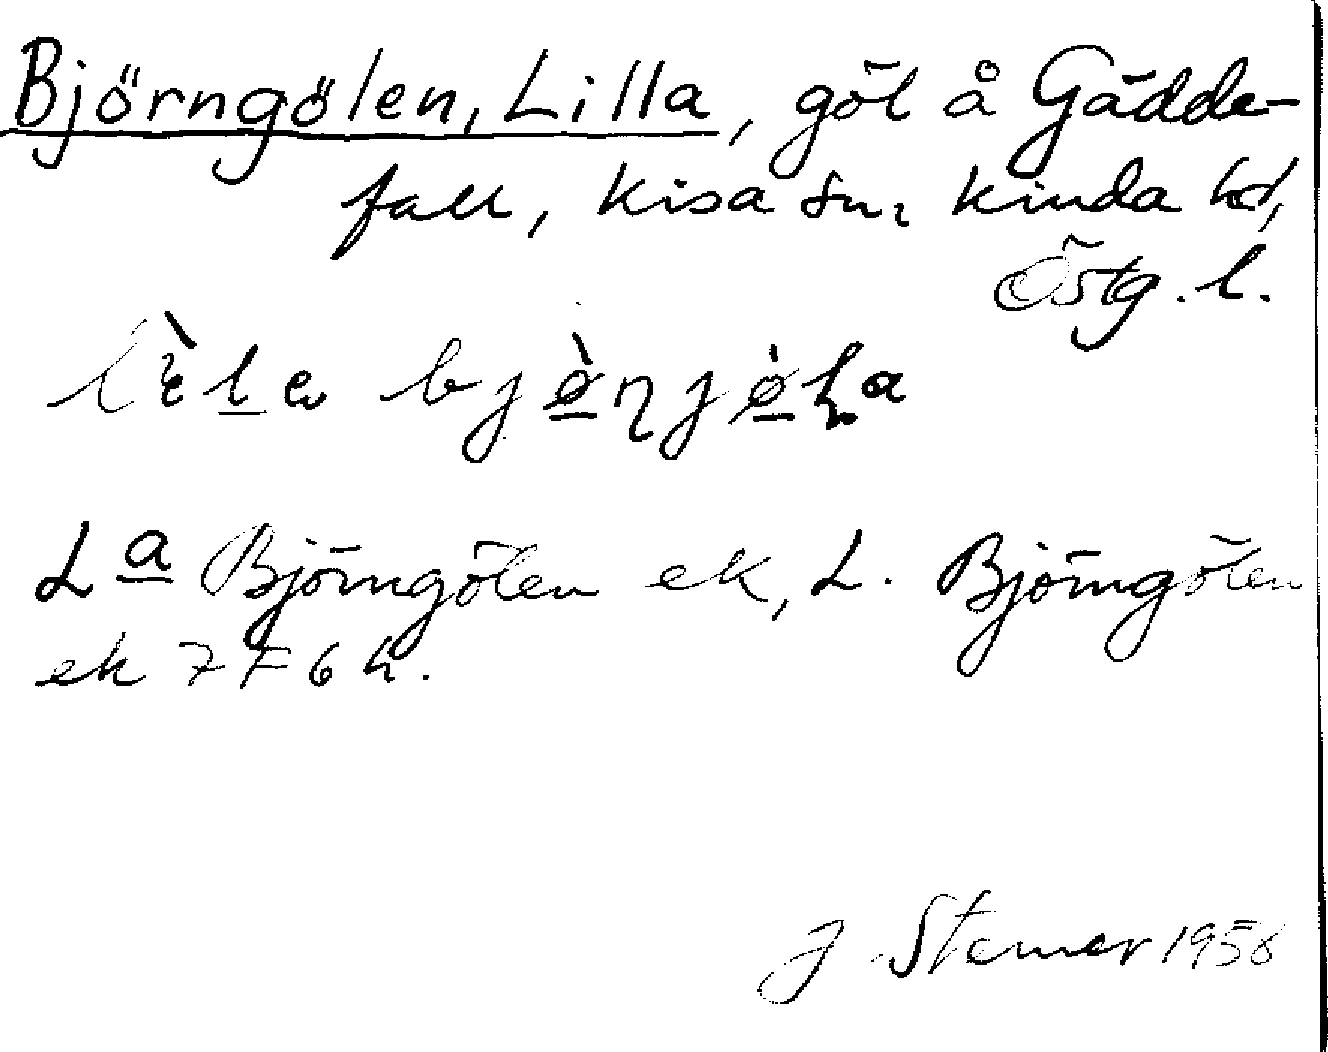 Björngölen, Lilla, göl å Gädde-
fall, Kisa sn, Kinda hd,
Östg. l.
La Björngölen ek, L. Björngölen
ek 7F6h.
J. Stemer 1958